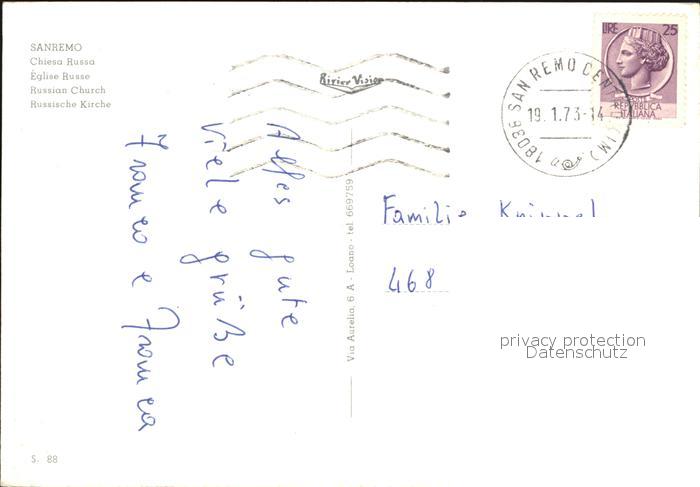 SANREMO
Chiesa Russa
Église Russe
Russian Church
Russische Kirche
Alles gute
Viele grüße
Franco e Franca
Via Aurelia, 6 A - Loano - tel. 669759
LIRE 25
REPUBBLICA
ITALIANA
18038 SAN REMO CEN
19.1.73-14
(IM)
Familie
468
privacy protection
Datenschutz
S. 88